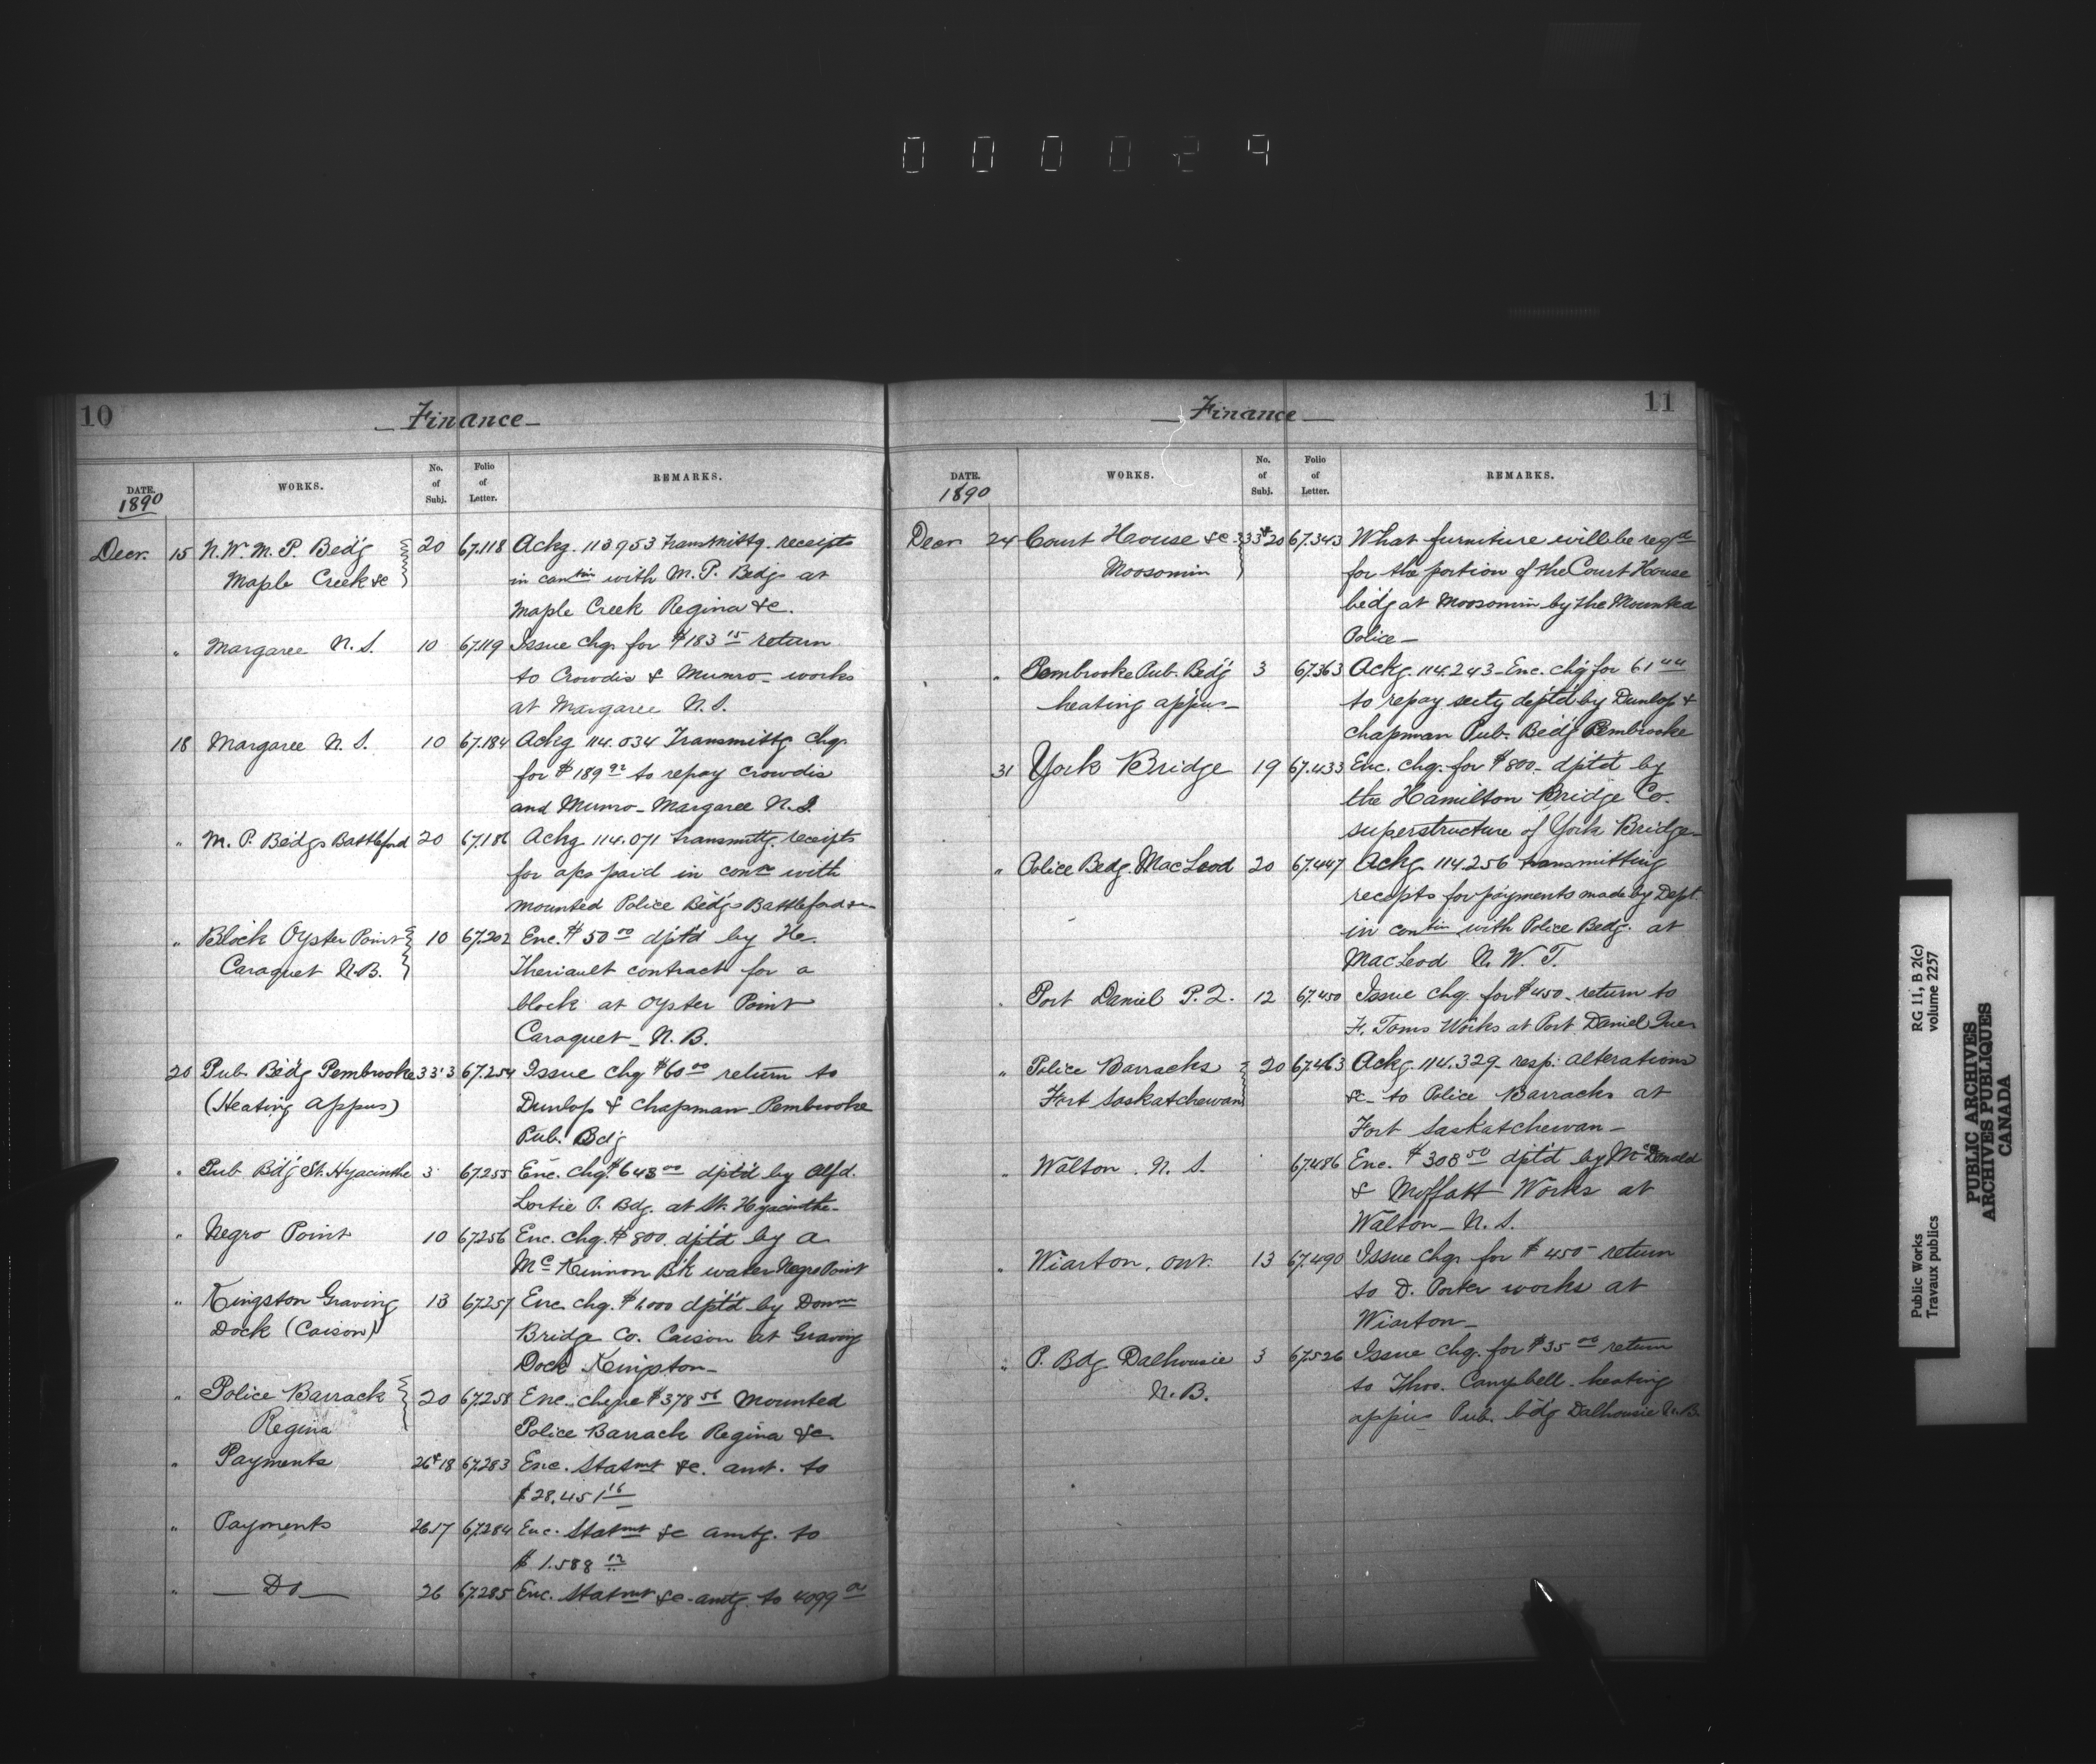 000029
10
Finance
DATE. WORKS. No. of Subj. Folio of Letter. REMARKS.
1890
Decr. 15 N.W.M.P. Bedg 20 67.118 Ackg. 113953 transmittg. receipts
Maple Creek &c in contin with M.P. Bedgs at
Maple Creek Regina &c.
" Margaree N.S. 10 67.119 Issue chq. for $183 15 return
to Crowdis & Munro - works
at Margaree N.S.
18 Margaree N.S. 10 67.184 Ackg 114.034 Transmittg chq.
for $189 92 to repay Crowdis
and Munro - Margaree N.S.
" M.P. Bedgs Battleford 20 67.186 Ackg 114.071 transmttg. receipts
for a/cs paid in contn with
mounted Police Bedgs Battleford
" Block Oyster Point 10 67.202 Enc. $50 00 dptd by He.
Caraquet N.B. Theriault contract for a
block at Oyster Point
Caraquet - N.B.
20 Pub. Bedg Pembrooke 33'3 67.254 Issue chq $60 00 return to
(Heating appus) Dunlop & Chapman Pembrooke
Pub. Bdg
" Pub Bdg St. Hyacinthe 3 67.255 Enc. chq. $648 00 dptd by Alfd.
Lortie P. Bdg. at St. Hyacinthe -
" Negro Point 10 67.256 Enc. chq. $800. dptd by A
McKinnon Bk water Negro Point
" Kingston Graving 13 67.257 Enc. chq. $1,000 dptd by Domn
Dock (Caison) Bridge Co. Caison at Graving
Dock Kingston -
" Police Barrack 20 67.258 Enc. cheque $378 56 mounted
Regina Police Barrack Regina &c.
" Payments 26&18 67.283 Enc. statmt &c. amt. to
$28,451 16
" Payments 26.17 67.284 Enc. Statmt &c amtg. to
$1.588 12
" — Do — 26 67.285 Enc. Statmt &c - amtg. to 4099 00
11
— Finance —
DATE. WORKS. No. of Subj. Folio of Letter. REMARKS.
1890
Decr 24 Court House &c 33&20 67.343 What furniture will be reqd
Moosomin for the portion of the Court House
bedg at Moosomin by the Mounted
Police —
" Pembrooke Pub. Bedg 3 67.363 Ackg. 114.243 - Enc. chq for 61 44
heating appus - to repay secty deptd by Dunlop &
Chapman Pub. Bedg Pembrooke
31 York Bridge 19 67.433 Enc. chq. for $800 - dptd by
the Hamilton Bridge Co.
superstructure of York Bridge -
" Police Bedg. MacLeod 20 67.447 Ackg. 114.256 transmitting
receipts for payments made by Dept.
in contin with Police Bedg. at
MacLeod N.W.T.
" Port Daniel P.Q. 12 67.450 Issue chq. for $450 - return to
F. Toms Works at Port Daniel Que
" Police Barracks 20 67.463 Ackg. 114.329 resp. alterations
Fort Saskatchewan &c - to Police Barracks at
Fort Saskatchewan -
" Walton. N.S. 67.486 Enc. $308 50 dptd by McDonald
& Moffatt Works at
Walton - N.S.
" Wiarton, Ont. 13 67.490 Issue chq. for $450 - return
to D. Porter works at
Wiarton -
" P. Bdg Dalhousie 3 67.526 Issue chq. for $35 00 return
N.B. to Thos. Campbell - heating
appus Pub. bdg Dalhousie N.B.
Public Works RG 11, B 2(c)
Travaux publics volume 2257
PUBLIC ARCHIVES
ARCHIVES PUBLIQUES
CANADA